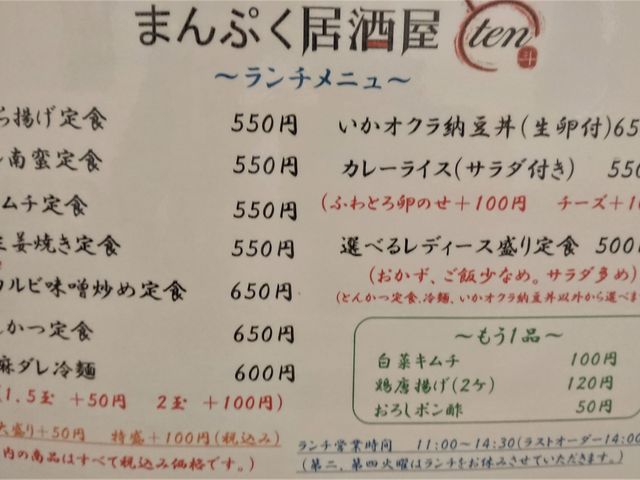 まんぷく居酒屋 ten 斗
～ランチメニュー～
ら揚げ定食 550円
南蛮定食 550円
ムチ定食 550円
生姜焼き定食 550円
カルビ味噌炒め定食 650円
んかつ定食 650円
麻ダレ冷麺 600円
(1.5玉 +50円 2玉 +100円)
大盛り+50円 特盛+100円(税込み)
内の商品はすべて税込み価格です。)
いかオクラ納豆丼(生卵付)65
カレーライス(サラダ付き) 550
(ふわとろ卵のせ+100円 チーズ+10
選べるレディース盛り定食 500円
(おかず、ご飯少なめ。サラダ多め)
(とんかつ定食、冷麺、いかオクラ納豆丼以外から選べま
～もう1品～
白菜キムチ 100円
鶏唐揚げ(2ケ) 120円
おろしポン酢 50円
ランチ営業時間 11:00～14:30(ラストオーダー14:00
(第二、第四火曜はランチをお休みさせていただきます。)